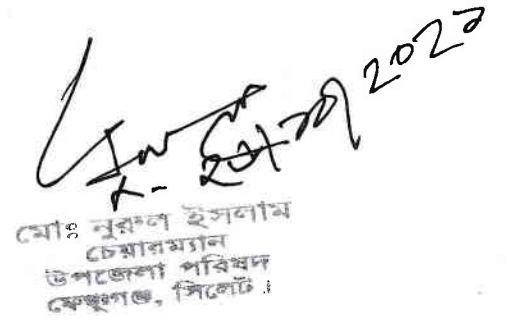 ২০২১
মোঃ নুরুল ইসলাম
চেয়ারম্যান
উপজেলা পরিষদ
ফেঞ্চুগঞ্জ, সিলেট।